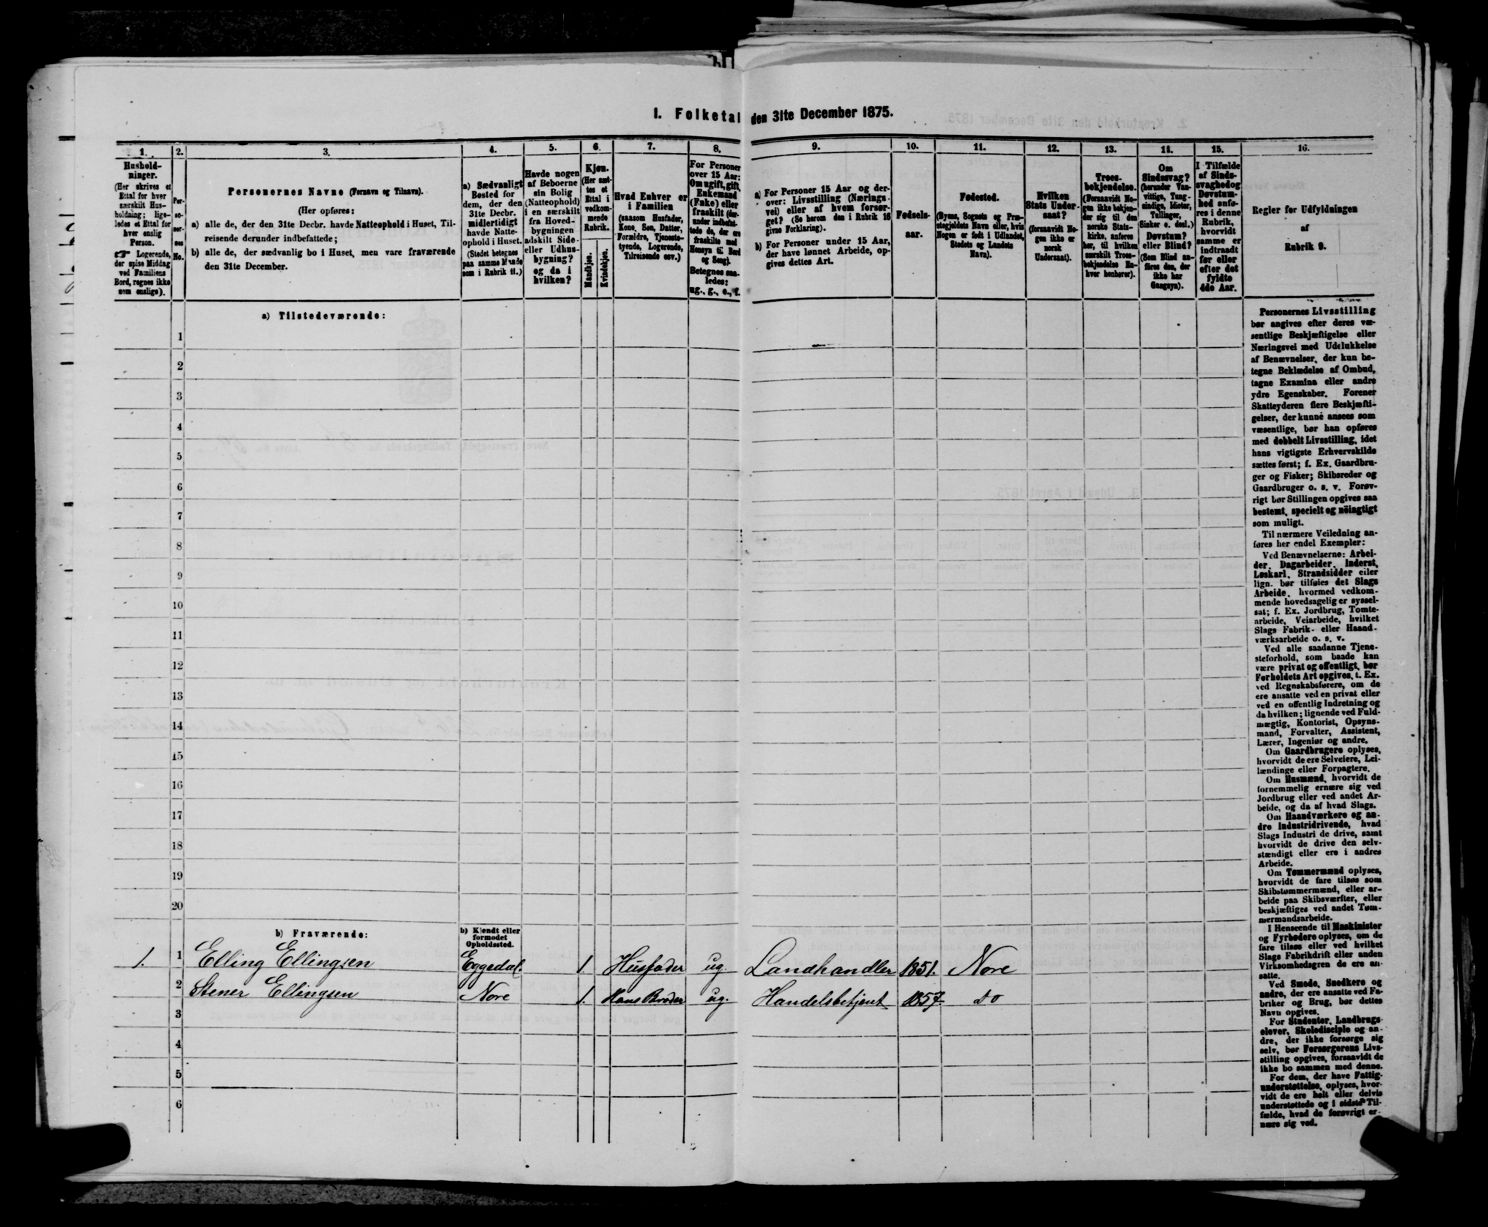 1. Folketal den 31te December 1875.
1.
Hushold-
ninger.
(Her skrives et
Ettal for hver
særskilt Hus-
holdning; lige-
ledes et Ettal for
hver enslig
Person.
Logerende,
der spise Middag
ved Familiens
Bord, regnes ikke
som enslige).
2.
Per-
so-
ner-
nes
No.
3.
Personernes Navne (Fornavn og Tilnavn).
(Her opføres:
a) alle de, der den 31te Decbr. havde Natteophold i Huset, Til-
reisende derunder indbefattede;
b) alle de, der sædvanlig bo i Huset, men vare fraværende
den 31te December.
4.
a) Sædvanligt
Bosted for
dem, der den
31te Decbr.
midlertidigt
havde Natte-
ophold i Huset.
(Stedet betegnes
paa samme Maade
som i Rubrik 11.)
5.
Havde nogen
af Beboerne
sin Bolig
(Natteophold)
i en særskilt
fra Hoved-
bygningen
adskilt Side-
eller Udhus-
bygning?
og da i
hvilken?
6.
Kjøn.
(Her sæt-
tes et
Ettal i
vedkom-
mende
Rubrik.
Mandkjøn.
Kvindekjøn.
7.
Hvad Enhver er
i Familien
(saasom Husfader,
Kone, Søn, Datter,
Forældre, Tjeneste-
tyende, Logerende,
Tilreisende osv.)
8.
For Personer
over 15 Aar:
Om ugift, gift,
Enkemand
(Enke) eller
fraskilt (der-
under indbefat-
tede de, der ere
fraskilte med
Hensyn til Bord
og Seng).
Betegnes saa-
ledes:
ug., g., e., f.
9.
a) For Personer 15 Aar og der-
over: Livsstilling (Nærings-
vei) eller af hvem forsør-
get? (Se herom den i Rubrik 16
givne Forklaring).
b) For Personer under 15 Aar,
der have lønnet Arbeide, op-
gives dettes Art.
10.
Fødsels-
aar.
11.
Fødested.
(Byens, Sognets og Præ-
stegjeldets Navn eller, hvis
Nogen er født i Udlandet,
Stedets og Landets
Navn).
12.
Hvilken
Stats Under-
saat?
(Forsaavidt No-
gen ikke er
norsk
Undersaat).
13.
Troes-
bekjendelse.
(Forsaavidt No-
gen ikke bekjen-
der sig til den
norske Stats-
kirke, anføres
her, til hvilken
særskilt Troes-
bekjendelse En-
hver henhører).
14.
Om
Sindssvag?
(herunder Van-
vittige, Tung-
sindige, Idioter,
Tullinger,
Sinker o. desl.)
Døvstum?
eller Blind?
(Som Blind an-
føres den, der
ikke har
Gangsyn).
15.
I Tilfælde
af Sinds-
svaghed og
Døvstum-
hed anfø-
res i denne
Rubrik,
hvorvidt
samme er
indtraadt
før eller
efter det
fyldte
4de Aar.
16.
Regler for Udfyldningen
af
Rubrik 9.
a) Tilstedeværende:
1
2
3
4
5
6
7
8
9
10
11
12
13
14
15
16
17
18
19
20
b) Fraværende:
b) Kjendt eller
formodet
Opholdssted.
1. 1 Elling Ellingsen Eggedal. 1. Husfader ug. Landhandler 1851. Nore
2 Stener Ellingsen Nore 1. Hans Broder ug. Handelsbetjent 1857 do
3
4
5
6
Personernes Livsstilling
bør angives efter deres væ-
sentlige Beskjæftigelse eller
Næringsvei med Udelukkelse
af Benævnelser, der kun be-
tegne Beklædelse af Ombud,
tagne Examina eller andre
ydre Egenskaber. Forener
Skatteyderen flere Beskjæfti-
gelser, der kunne ansees som
væsentlige, bør han opføres
med dobbelt Livsstilling, idet
hans vigtigste Erhvervskilde
sættes først; f. Ex. Gaardbru-
ger og Fisker; Skibsreder og
Gaardbruger o. s. v. Forøv-
rigt bør Stillingen opgives saa
bestemt, specielt og nöiagtigt
som muligt.
Til nærmere Veiledning an-
føres her endel Exempler:
Ved Benævnelserne: Arbei-
der, Dagarbeider, Inderst,
Løskarl, Strandsidder eller
lign. bør tilføies det Slags
Arbeide, hvormed vedkom-
mende hovedsagelig er syssel-
sat; f. Ex. Jordbrug, Tomte-
arbeide, Veiarbeide, hvilket
Slags Fabrik- eller Haand-
værksarbeide o. s. v.
Ved alle saadanne Tjene-
steforhold, som baade kan
være privat og offentligt, bør
Forholdets Art opgives, f. Ex.
ved Regnskabsførere, om de
ere ansatte ved en privat eller
ved en offentlig Indretning og
da hvilken; lignende ved Fuld-
mægtig, Kontorist, Opsyns-
mand, Forvalter, Assistent,
Lærer, Ingeniør og andre.
Om Gaardbrugere oplyses,
hvorvidt de ere Selveiere, Lei-
lændinge eller Forpagtere.
Om Husmænd, hvorvidt de
fornemmelig ernære sig ved
Jordbrug eller ved andet Ar-
beide, og da af hvad Slags.
Om Haandværkere og an-
dre Industridrivende, hvad
Slags Industri de drive, samt
hvorvidt de drive den selv-
stændigt eller ere i andres
Arbeide.
Om Tømmermænd oplyses,
hvorvidt de fare tilsøs som
Skibstømmermænd, eller ar-
beide paa Skibsværfter, eller
beskjæftiges ved andet Tøm-
mermandsarbeide.
I Henseende til Maskinister
og Fyrbødere oplyses, om de
fare tilsøs eller ved hvilket
Slags Fabrikdrift eller anden
Virksomhedsgren de ere an-
satte.
Ved Smede, Snedkere og
andre, der ere ansatte ved Fa-
briker og Brug, bør dettes
Navn opgives.
For Studenter, Landbrugs-
elever, Skoledisciple og an-
dre, der ikke forsørge sig
selv, bør Forsørgerens Livs-
stilling opgives, forsaavidt de
ikke bo sammen med denne.
For dem, der have Fattig-
understøttelse, oplyses, hvor-
vidt de ere helt eller delvis
understøttede og i sidste Til-
fælde, hvad de forøvrigt er-
nære sig ved.